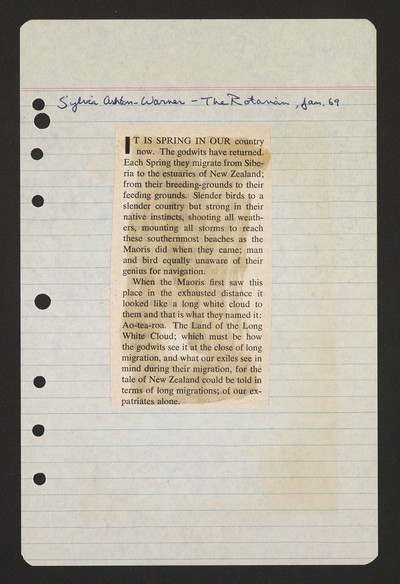 Sylvia Ashton-Warner - The Rotarian, Jan. 69
IT IS SPRING IN OUR country
now. The godwits have returned.
Each Spring they migrate from Sibe-
ria to the estuaries of New Zealand;
from their breeding-grounds to their
feeding grounds. Slender birds to a
slender country but strong in their
native instincts, shooting all weath-
ers, mounting all storms to reach
these southernmost beaches as the
Maoris did when they came; man
and bird equally unaware of their
genius for navigation.
When the Maoris first saw this
place in the exhausted distance it
looked like a long white cloud to
them and that is what they named it:
Ao-tea-roa. The Land of the Long
White Cloud; which must be how
the godwits see it at the close of long
migration, and what our exiles see in
mind during their migration, for the
tale of New Zealand could be told in
terms of long migrations; of our ex-
patriates alone.